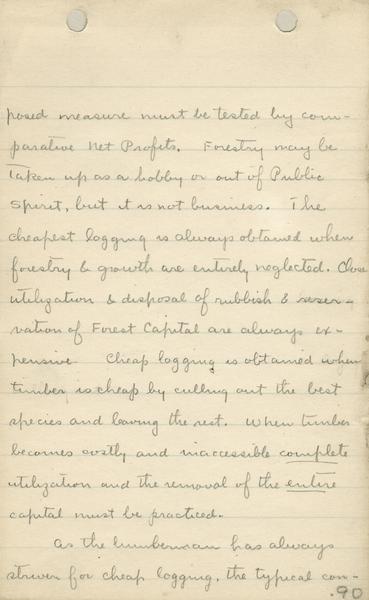 posed measure must be tested by com-
parative Net Profits. Forestry may be
Taken up as a hobby or out of Public
Spirit, but it is not business. The
cheapest logging is always obtained when
forestry & growth are entirely neglected. Close
utilization & disposal of rubbish & reser-
vation of Forest Capital are always ex-
pensive Cheap logging is obtained when
timber is cheap by culling out the best
species and leaving the rest. When timber
becomes costly and inaccessible complete
utilization and the removal of the entire
capital must be practiced.
As the lumberman has always
striven for cheap logging, the typical con-
.90